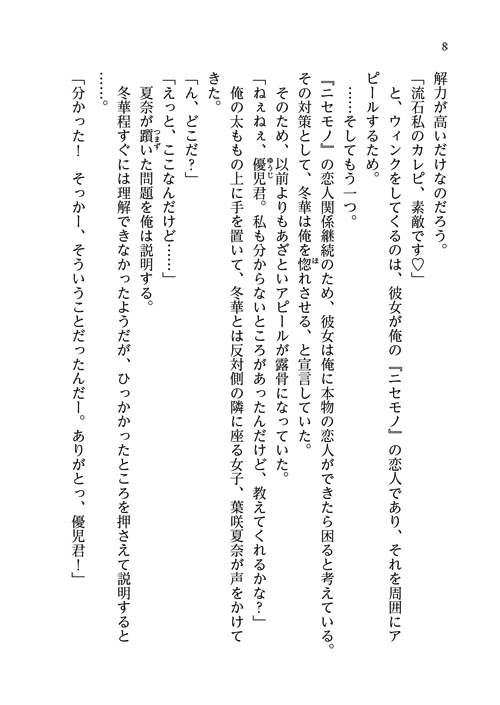 8
解力が高いだけなのだろう。
「流石私のカレピ、素敵です♡」
と、ウィンクをしてくるのは、彼女が俺の『ニセモノ』の恋人であり、それを周囲にア
ピールするため。
……そしてもう一つ。
『ニセモノ』の恋人関係継続のため、彼女は俺に本物の恋人ができたら困ると考えている。
その対策として、冬華は俺を惚れさせる、と宣言していた。
そのため、以前よりもあざといアピールが露骨になっていた。
「ねぇねぇ、優児君。私も分からないところがあったんだけど、教えてくれるかな？」
俺の太ももの上に手を置いて、冬華とは反対側の隣に座る女子、葉咲夏奈が声をかけて
きた。
「ん、どこだ？」
「えっと、ここなんだけど……」
夏奈が躓いた問題を俺は説明する。
冬華程すぐには理解できなかったようだが、ひっかかったところを押さえて説明すると
……。
「分かった！　そっかー、そういうことだったんだー。ありがとっ、優児君！」